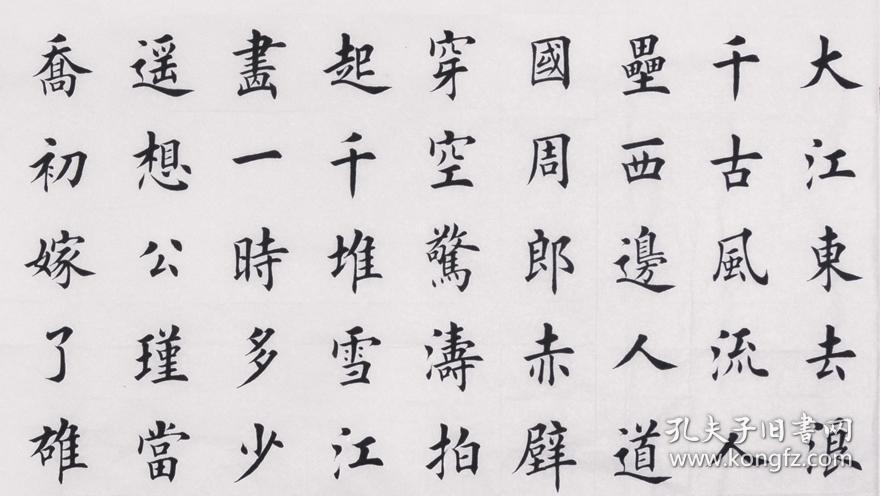 大江東去浪
千古風流人
壘西邊人道
國周郎赤壁
穿空驚濤拍
起千堆雪江
畫一時多少
遥想公瑾當
喬初嫁了雄
孔夫子旧书网
www.kongfz.com